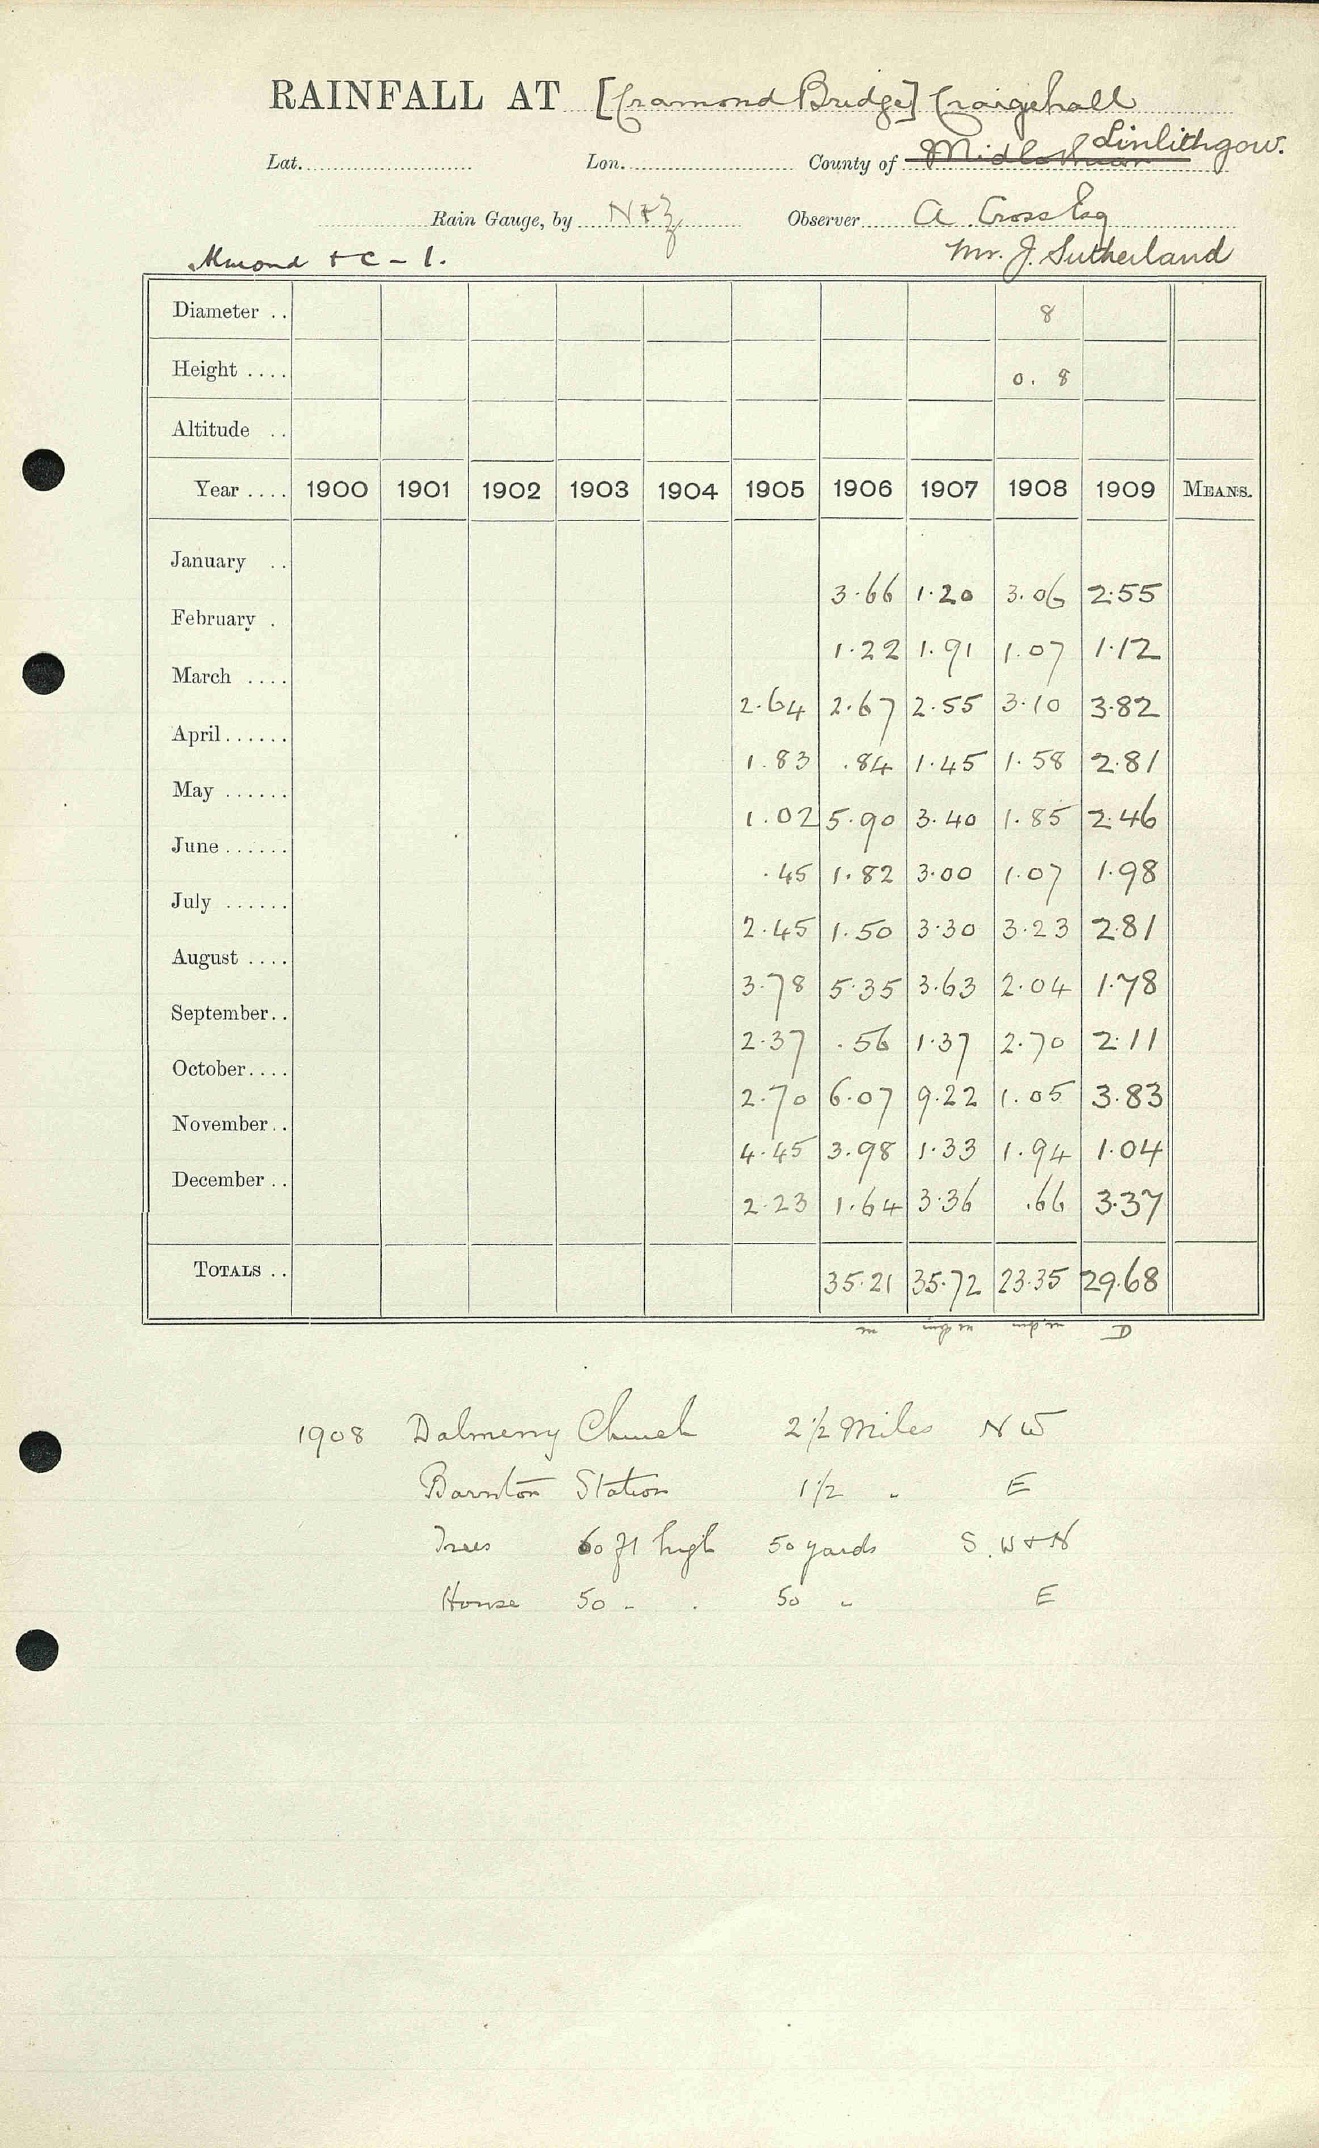 RAINFALL AT [Cramond Bridge] Craigiehall
Lat. Lon. County of Midlothian Linlithgow.
Rain Gauge, by N & Z Observer A. Cross Esq
Almond & C - 1. Mr. J. Sutherland
Diameter .. 8
Height .... 0. 8
Altitude ..
Year .... 1900 1901 1902 1903 1904 1905 1906 1907 1908 1909 MEANS.
January .. 3.66 1.20 3.06 2.55
February . 1.22 1.91 1.07 1.12
March .... 2.64 2.67 2.55 3.10 3.82
April...... 1.83 .84 1.45 1.58 2.81
May ...... 1.02 5.90 3.40 1.85 2.46
June ...... .45 1.82 3.00 1.07 1.98
July ...... 2.45 1.50 3.30 3.23 2.81
August .... 3.78 5.35 3.63 2.04 1.78
September.. 2.37 .56 1.37 2.70 2.11
October.... 2.70 6.07 9.22 1.05 3.83
November.. 4.45 3.98 1.33 1.94 1.04
December .. 2.23 1.64 3.36 .66 3.37
TOTALS .. 35.21 35.72 23.35 29.68
1908 Dalmeny Church 2 1/2 Miles N W
Barnton Station 1 1/2 " E
Trees 60 ft high 50 yards S. W & N
House 50 " " 50 " E